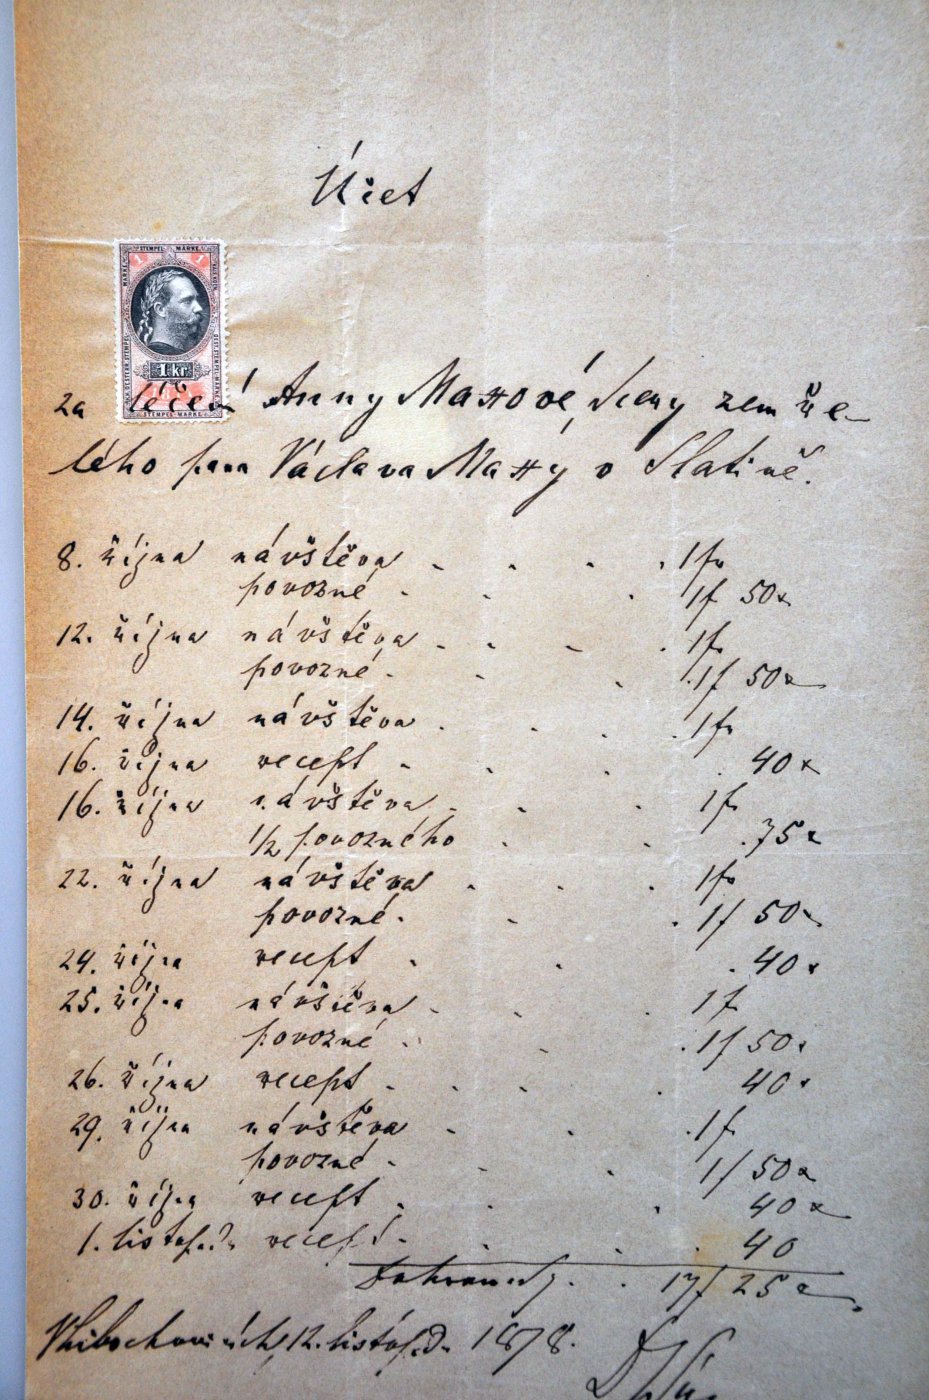 Účet
STEMPEL MARKE
1 1
1 kr
STEMPEL-MARKE
za léčení Anny Maxové, dcery zemře-
lého pana Václava Maxy v Slatině.
8. října návštěva . . . . 1 fr
povozné . . . 1f 50x
12. října návštěva . . . . 1f.
povozné . . . 1f 50x
14. října návštěva . . . . 1fr
16. října recept . . . . 40x
16. října návštěva . . . 1f.
1/2 povozného . . . 75x
22. října návštěva . . . 1fr
povozné . . . 1f 50x
24. října recept . . . 40x
25. října návštěva . . 1f.
povozné . . . 1f 50x
26. října recept . . . . 40x
29. října návštěva . . . 1f.
povozné . . . 1f 50x
30. října recept . . . 40x
1. listopadu recept . . . . 40
Dohromady . . 17f 25x
V Libochovicích, 12. listopadu 1878.